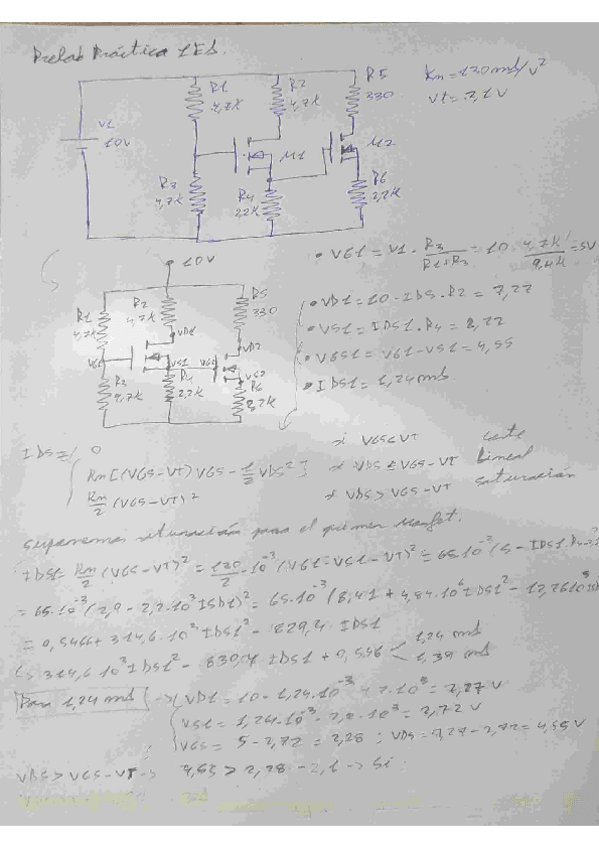 Prelab Práctica 1ES.
Kn=120 mA/V²
Vt=2,1V
R1
4,7K
R2
4,7K
R5
330
V1
10V
M1
M2
R3
4,7K
R4
2,2K
R6
2,2K
• VG1 = V1 · R3/(R1+R3) = 10 · 4,7K/9,4K = 5V
10V
R1
4,7K
R2
4,7K
R5
330
VD1
VD2
VG1
VS1
VG2
VS2
R3
4,7K
R4
2,2K
R6
2,2K
• VD1 = 10 - IDS · R2 =
• VS1 = IDS1 · R4 =
• VGS1 = VG1 - VS1 = 4,55
• IDS1 = 1,24 mA
IDS = 0 si VGS<VT corte
Kn[(VGS-VT)VGS - 1/2 VDS²] si VDS ≤ VGS-VT lineal
Kn/2 (VGS-VT)² si VDS > VGS-VT saturación
Suponemos saturación para el primer mosfet.
IDS1 = Kn/2 (VGS-VT)² = 120/2 · 10⁻³ (VG1-VS1-VT)² = 65·10⁻³ (5 - IDS1·R4-
= 65·10⁻³ (2,9 - 2,2·10³ ISD1)² = 65·10⁻³ (8,41 + 4,84·10⁶ IDS1² - 12,76·10³
= 0,5466 + 314,6·10³ IDS1² - 829,4 IDS1
314,6·10³ IDS1² - 830,4 IDS1 + 0,546 1,24 mA
1,39 mA
Para 1,24 mA → VD1 = 10 - 1,24·10⁻³ · 4,7·10³ = V
VS1 = 1,24·10⁻³ · 2,2·10³ = 2,72 V
VGS = 5 - 2,72 = 2,28 ; VDS = - 2,72 = 4,55 V
VDS > VGS-VT → 4,55 > 2,28 - 2,1 → Si